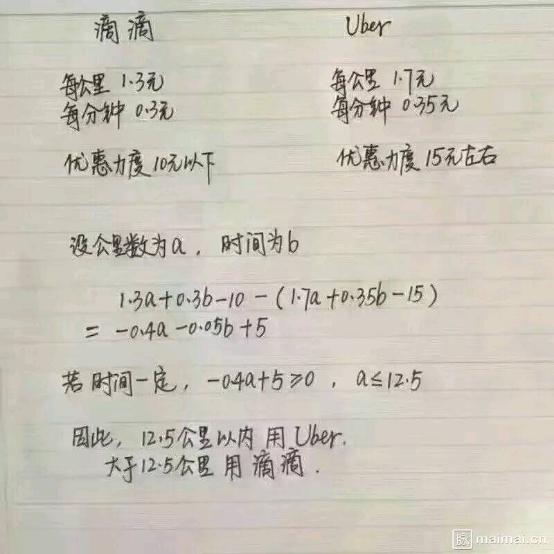 滴滴 Uber
每公里 1.3元 每公里 1.7元
每分钟 0.3元 每分钟 0.35元
优惠力度10元以下 优惠力度15元左右
设公里数为a，时间为b
1.3a+0.3b-10-(1.7a+0.35b-15)
= -0.4a-0.05b+5
若时间一定，-0.4a+5≥0，a≤12.5
因此，12.5公里以内用Uber.
大于12.5公里用滴滴.
脉 maimai.cn